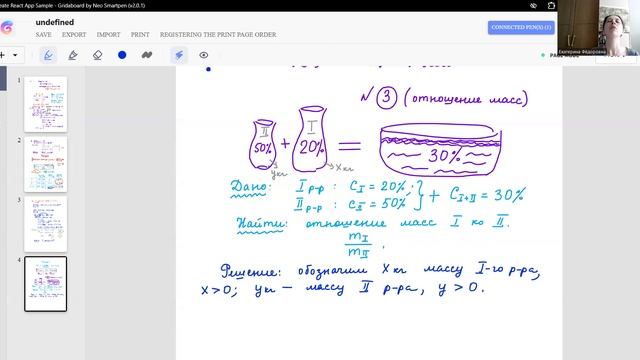 eate React App Sample - Gridaboard by Neo Smartpen (v2.0.1)
undefined
SAVE EXPORT IMPORT PRINT REGISTERING THE PRINT PAGE ORDER
CONNECTED PEN(S) (1)
Екатерина Фёдоровна
1
2
3
4
№ 3 (отношение масс)
II 50% + I 20% = 30%
y кг x кг
Дано: I р-р : C_I = 20%; } + C_I+II = 30%
II р-р : C_II = 50%
Найти: отношение масс I ко II.
m_I / m_II .
Решение: обозначим x кг массу I-го р-ра,
x > 0; y кг — массу II р-ра, y > 0.